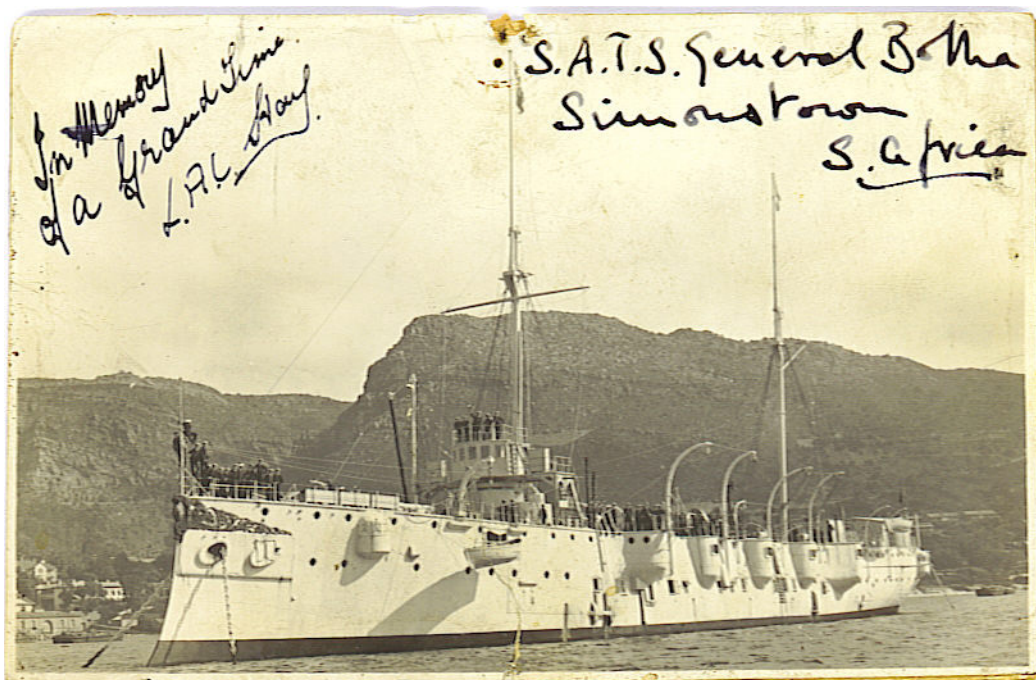 In Memory
of a Grand Time.
L.A.C
S.A.T.S. General Botha
Simonstown
S. Africa